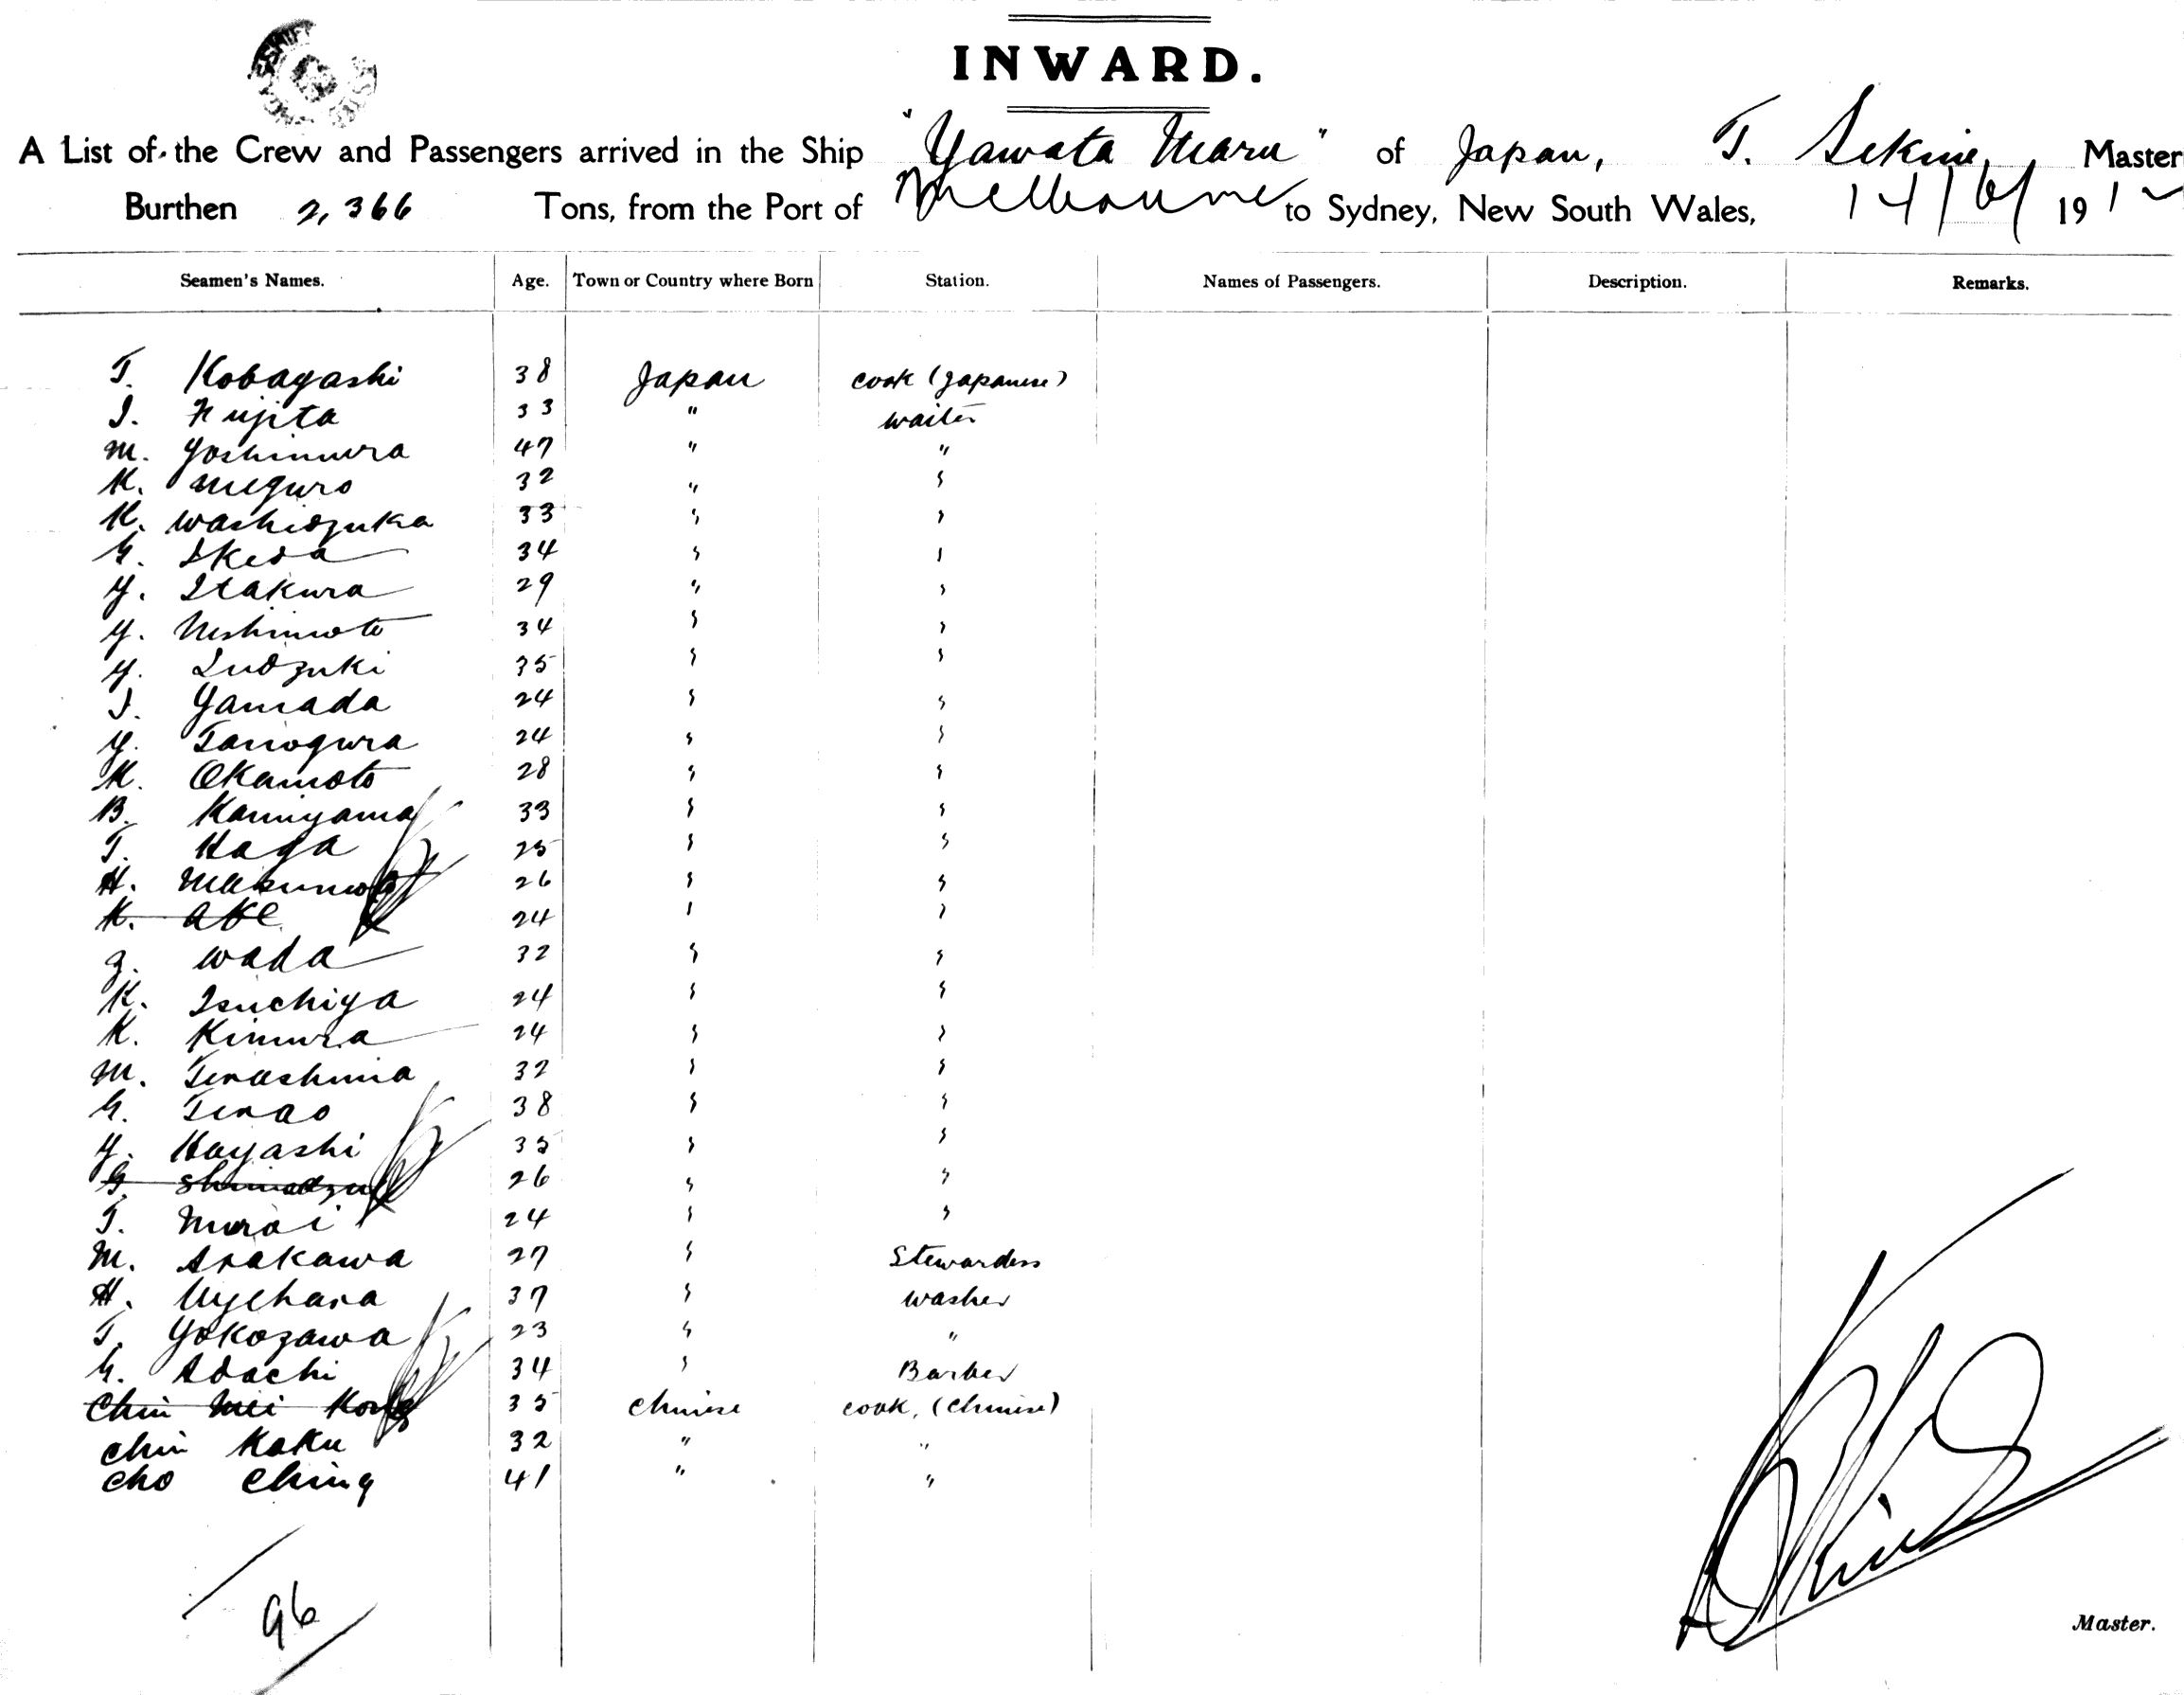 INWARD.
A List of the Crew and Passengers arrived in the Ship "Yawata Maru" of Japan, T. Sekine, Master
Burthen 2,366 Tons, from the Port of Melbourne to Sydney, New South Wales, 14/6/1912
Seamen's Names. Age. Town or Country where Born Station. Names of Passengers. Description. Remarks.
T. Kobayashi 38 Japan cook (Japanese)
I. Fujita 33 " waiter
M. Yoshimura 47 " "
K. Meguro 32 " "
K. Washidzuka 33 " "
G. Ikeda 34 " "
Y. Itakura 29 " "
Y. Nishimoto 34 " "
Y. Sudzuki 35 " "
I. Yamada 24 " "
Y. Tanogura 24 " "
K. Okamoto 28 " "
B. Kamiyama 33 " "
T. Haga 25 " "
H. 26 " "
K. Abe 24 " "
G. Wada 32 " "
K. Tsuchiya 24 " "
K. Kimura 24 " "
M. Terashima 32 " "
G. Terao 38 " "
Y. Hayashi 35 " "
G. Shimadzu 26 " "
T. Murai 24 " "
M. Arakawa 27 " Stewardess
H. Uyehara 37 " Washer
T. Yokozawa 23 " "
G. Adachi 34 " Barber
Chin Mei Kong 35 Chinese cook, (Chinese)
Chin Kaku 32 " "
Cho Ching 41 " "
96
Master.